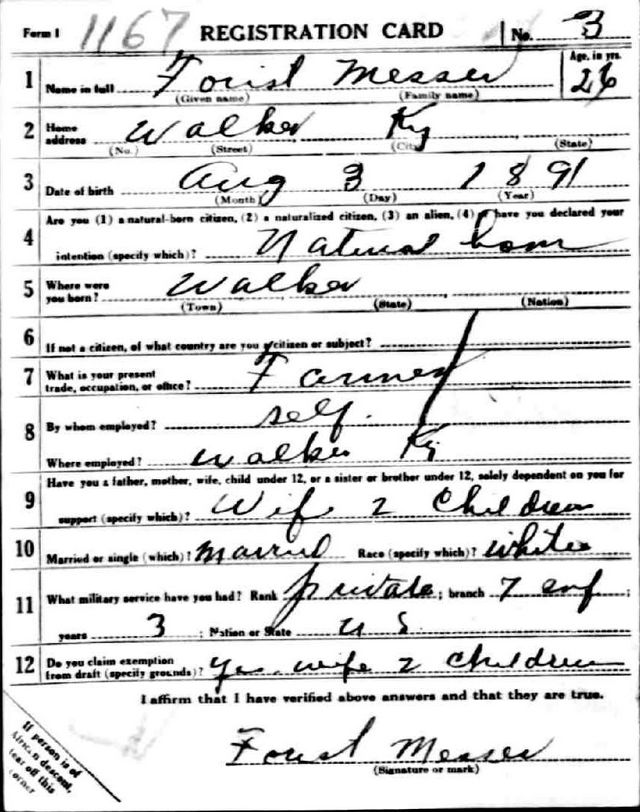 Form 1 1167 REGISTRATION CARD No. 3
1 Name in full Forist Messer Age, in yrs. 26
(Given name) (Family name)
2 Home address Walker Ky
(No.) (Street) (City) (State)
3 Date of birth Aug 3 1891
(Month) (Day) (Year)
4 Are you (1) a natural-born citizen, (2) a naturalized citizen, (3) an alien, (4) or have you declared your
intention (specify which)? Natural born
5 Where were you born? Walker
(Town) (State) (Nation)
6 If not a citizen, of what country are you a citizen or subject?
7 What is your present trade, occupation, or office? Farmer
8 By whom employed? self.
Where employed? Walker Ky
9 Have you a father, mother, wife, child under 12, or a sister or brother under 12, solely dependent on you for
support (specify which)? Wife 2 Children
10 Married or single (which)? Married Race (specify which)? white
11 What military service have you had? Rank private; branch 7 Inf;
years 3; Nation or State U S
12 Do you claim exemption from draft (specify grounds)? Yes wife 2 children
I affirm that I have verified above answers and that they are true.
Forist Messer
(Signature or mark)
If person is of
African descent,
tear off this
corner